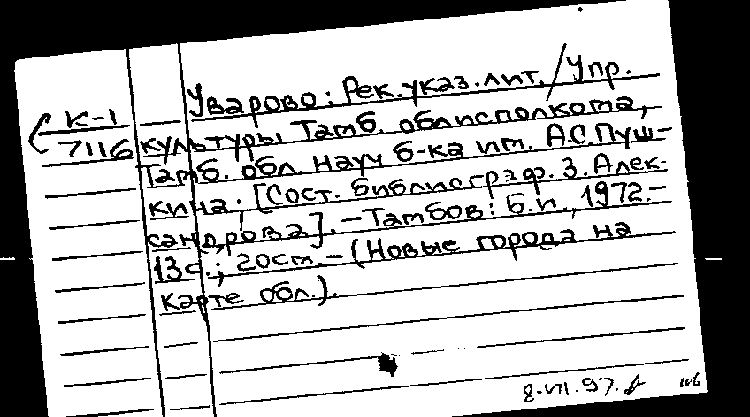 Уварово: Рек. указ. лит. / Упр.
К-1
7116
культуры Тамб. облисполкома,
Тамб. обл. науч б-ка им. А.С.Пуш-
кина; [Сост. библиограф. З. Алек-
сандрова]. – Тамбов: Б.и., 1972.–
13с.; 20см. – (Новые города на
карте обл.).
8.VII.97.